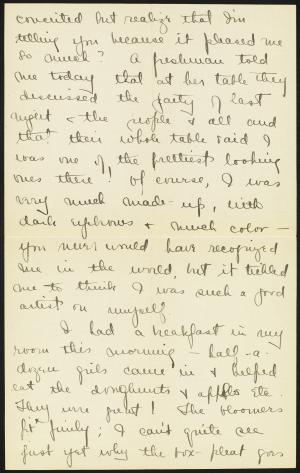 conceited but realize that I'm
telling you because it pleased me
so much? A freshman told
me today that at her table they
discussed the party of last
night & the people & all and
that their whole table said I
was one of the prettiest looking
ones there! Of course, I was
very much made-up, with
dark eyebrows & much color -
you never would have recognized
me in the world, but it tickled
me to think I was such a good
artist on myself.
I had a breakfast in my
room this morning - half-a-
dozen girls came in & helped
eat the doughnuts & apples etc.
They were great! The bloomers
fit finely; I can't quite see
just yet why the box-pleat goes